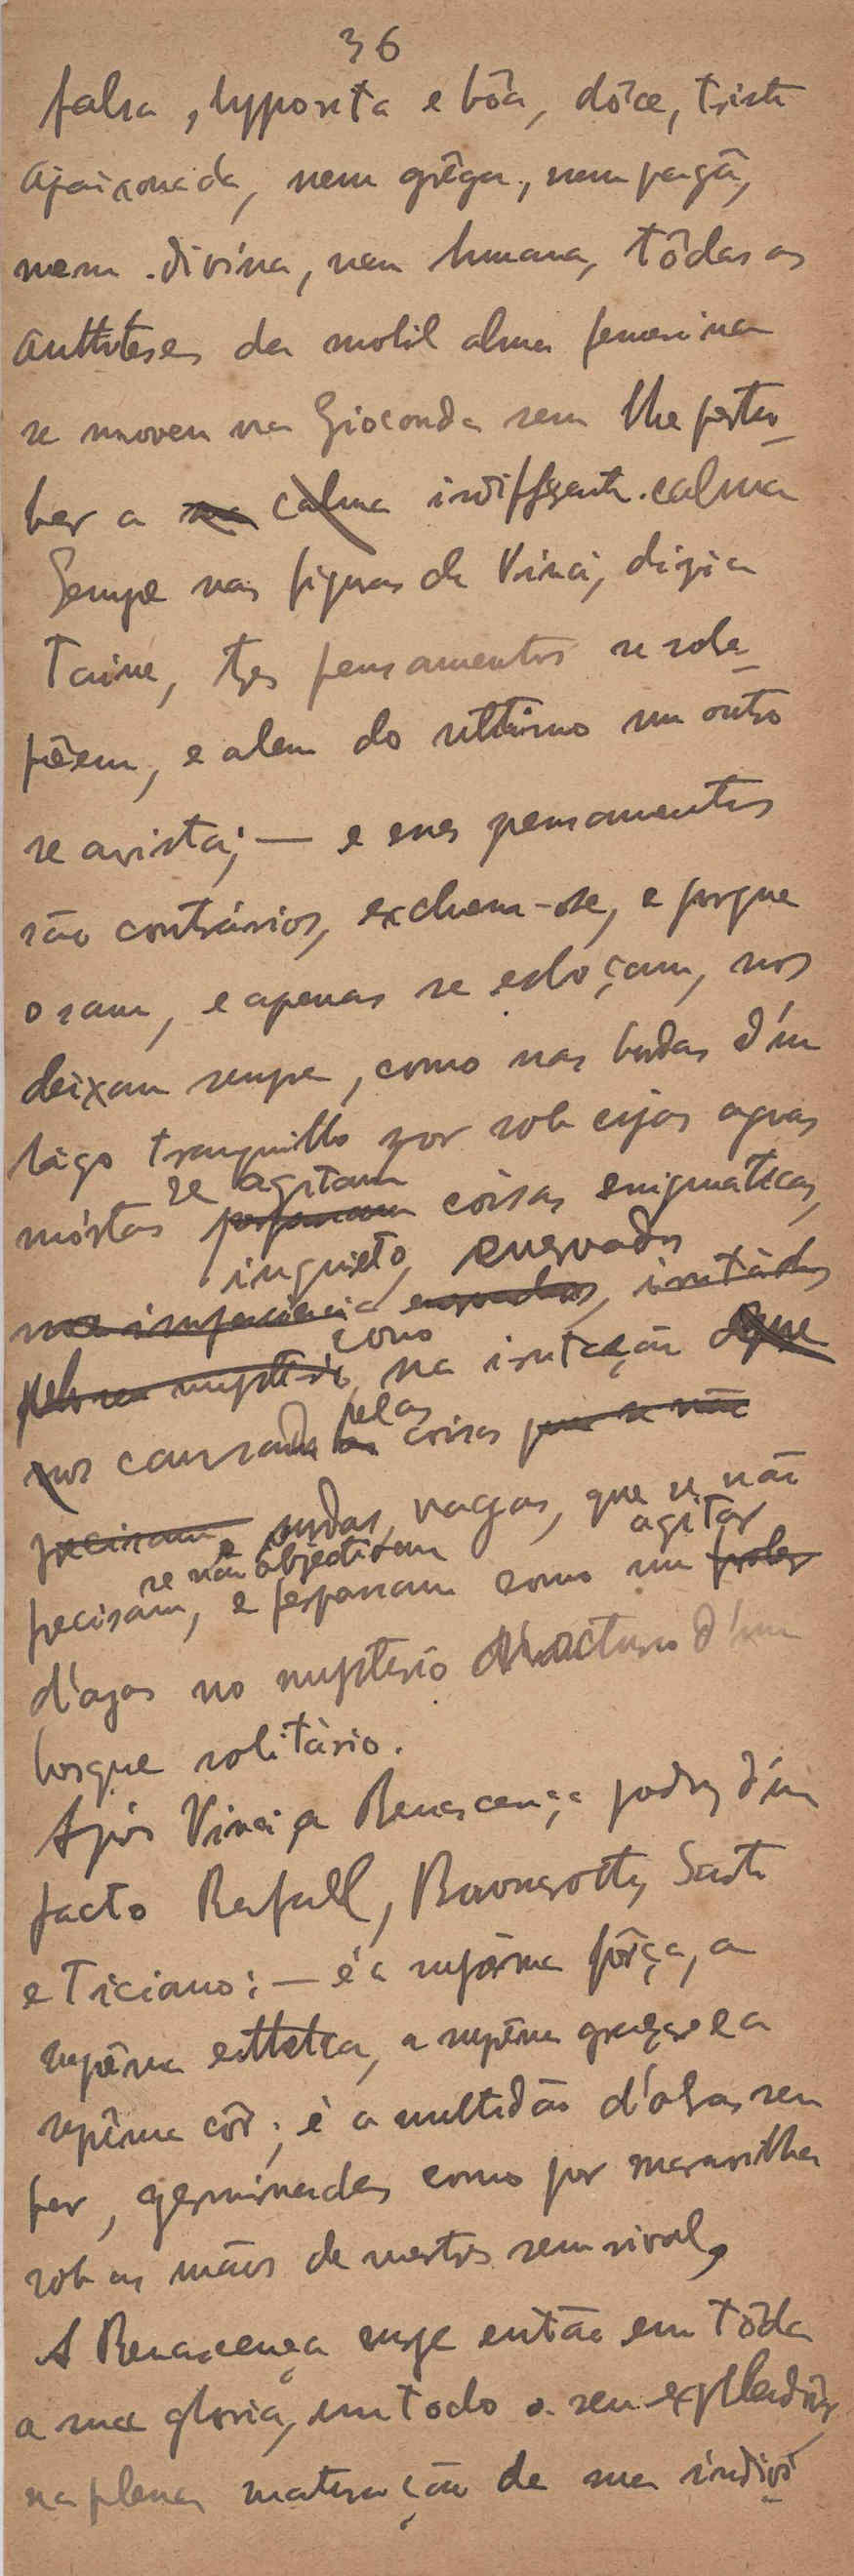 36
falsa, hypocrita e bôa, dôce, triste
apaixonada, nem grêga, nem pagã,
nem divina, nem humana, tôdas as
antitheses da mobil alma femenina
se movem na Gioconda sem lhe pertur-
bar a calma indifferente. calma
Sempre nas figuras de Vinci, dizia
Taine, tres pensamentos se sobre-
põem, e alem do ultimo um outro
se avista; — e esses pensamentos
são contrários, excluem-se, e porque
ousam, e apenas se esboçam, nos
deixam sempre, como nas bordas d'um
lago tranquillo por sob cujas aguas
mórtas se agitam coisas enigmaticas,
inquieto, enervados
impaciencia irritados
como
pelo seu mysterio, na irritação que
nos causada pelas coisas que se não
precisam, surdas, vagas, que se não
se não objectivam agitar
precisam, e perpassam como um
d'azas no mysterio nocturno d'um
bosque solitário.
Após Vinci a Renascença podes d'um
facto Rafael, Buonarotti, Sarto
e Ticiano: — é a suprêma fôrça, a
suprêma esthetica, a suprêma graça e a
suprêma côr; é a multidão d'obras sem
par, germinadas como por maravilha
sob as mãos de mestres sem rival,
A Renascença surge então em tôda
a sua gloria, em todo o seu explendôr,
na plena maturação de sua indivi